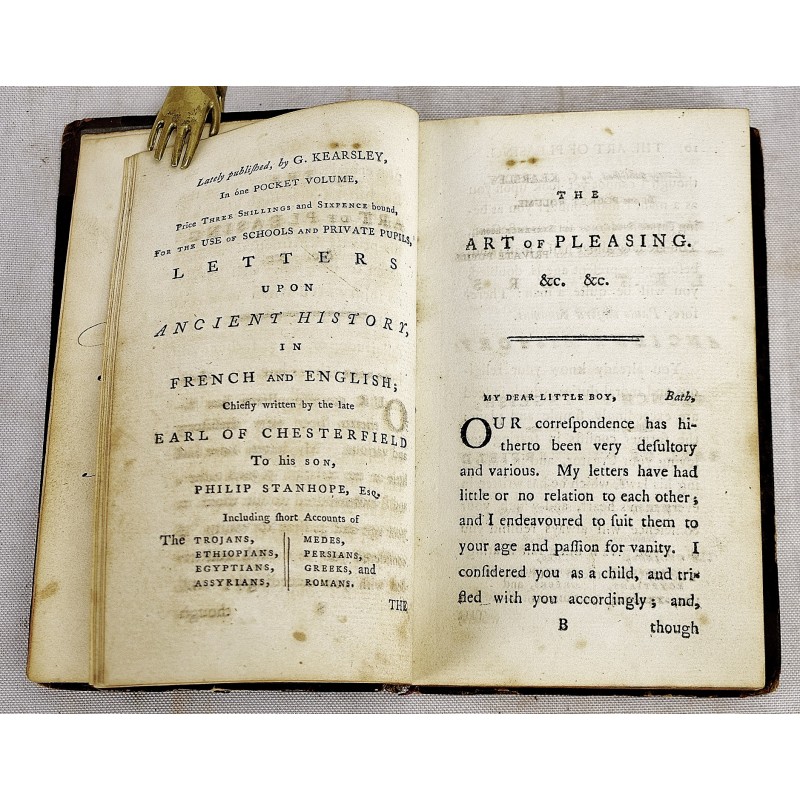 Lately publiſhed, by G. KEARSLEY,
In óne POCKET VOLUME,
Price THREE SHILLINGS and SIXPENCE bound,
FOR THE USE OF SCHOOLS AND PRIVATE PUPILS,
LETTERS
UPON
ANCIENT HISTORY,
IN
FRENCH AND ENGLISH;
Chiefly written by the late
EARL OF CHESTERFIELD
To his SON,
PHILIP STANHOPE, Esq.
Including ſhort Accounts of
The TROJANS, MEDES,
ETHIOPIANS, PERSIANS,
EGYPTIANS, GREEKS, and
ASSYRIANS, ROMANS.
THE
THE
ART OF PLEASING.
&c. &c.
MY DEAR LITTLE BOY, Bath,
OUR correſpondence has hi-
therto been very deſultory
and various. My letters have had
little or no relation to each other;
and I endeavoured to ſuit them to
your age and paſſion for vanity. I
conſidered you as a child, and tri-
fled with you accordingly; and,
B though